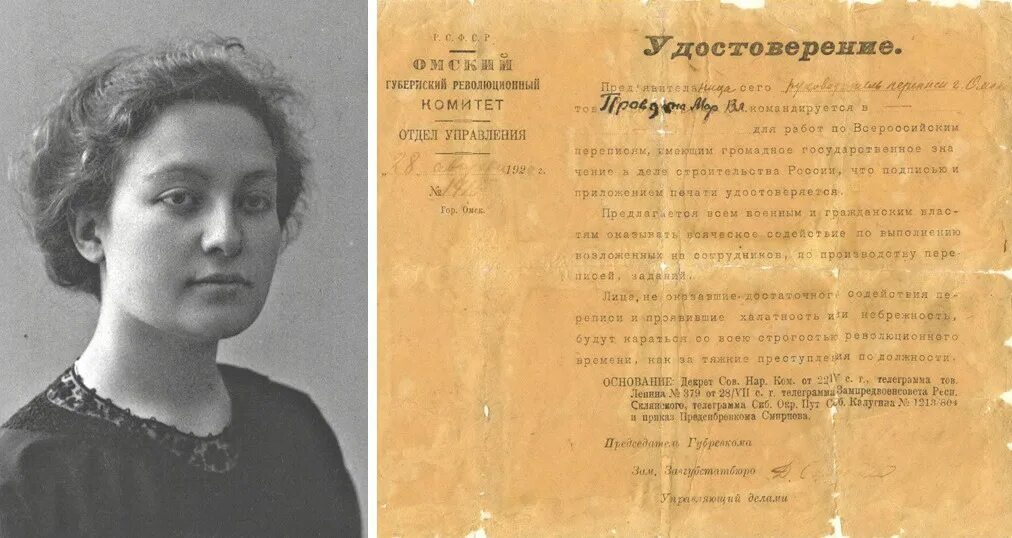 Р. С. Ф. С. Р
ОМСКИЙ
ГУБЕРНСКИЙ РЕВОЛЮЦИОННЫЙ
КОМИТЕТ
ОТДЕЛ УПРАВЛЕНИЯ
„28 192 г.
№
Гор. Омск.
Удостоверение.
Пред'явительница сего руководитель переписи г. Омск
тов. Мар Вл. командируется в
для работ по Всероссийским
переписям, имеющим громадное государственное зна
чение в деле строительства России, что подписью и
приложением печати удостоверяется.
Предлагается всем военным и гражданским влас-
тям оказывать всяческое содействие по выполнению
возложенных на сотрудников, по производству пере-
писей, заданий.
Лица, не оказавшие достаточного содействия пе-
реписи и проявившие халатность или небрежность,
будут караться со всею строгостью революционного
времени, как за тяжкие преступления по должности.
ОСНОВАНИЕ: Декрет Сов. Нар. Ком. от 22/IV с. г., телеграмма тов.
Ленина № 379 от 28/VII с. г. телеграмма Зампредвоенсовета Респ.
Склянского, телеграмма Скб. Окр. Пут Сиб. Калугина № 1213/804
и приказ Предсибревкома Смирнова.
Председатель Губревкома
Зам. Завгубстатбюро
Управляющий делами